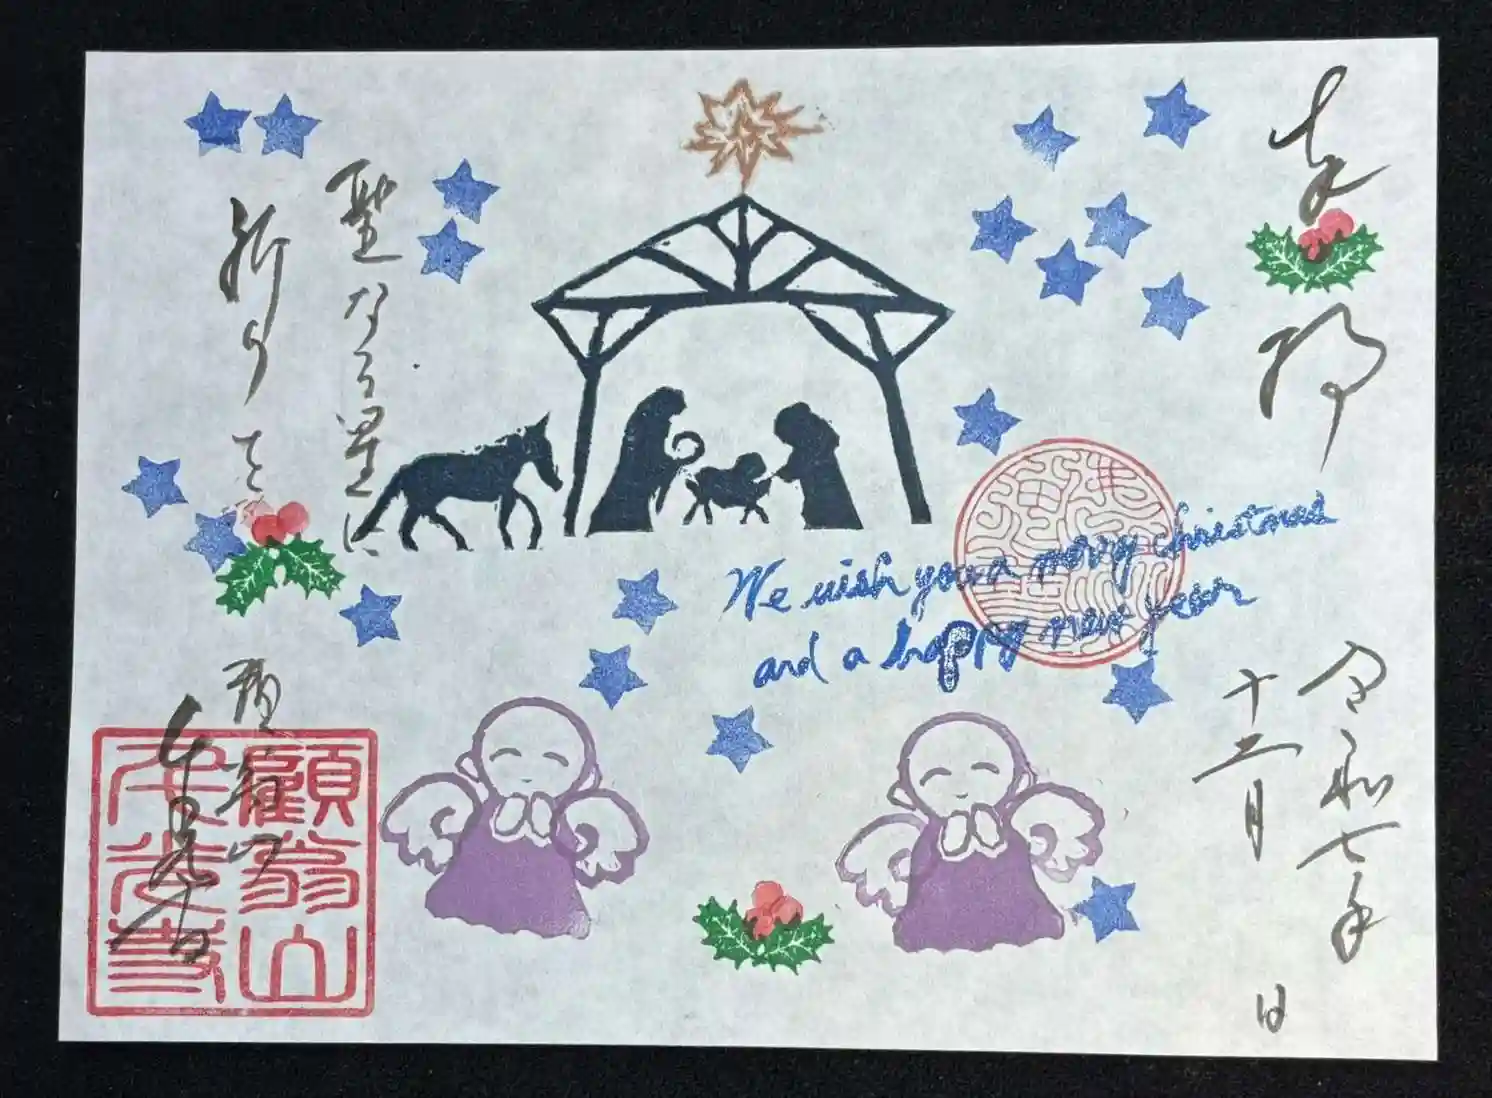 奉拝
令和七年
十二月 日
聖なる星に
祈りを
We wish you a merry christmas
and a happy new year
顧翁山
顧翁山